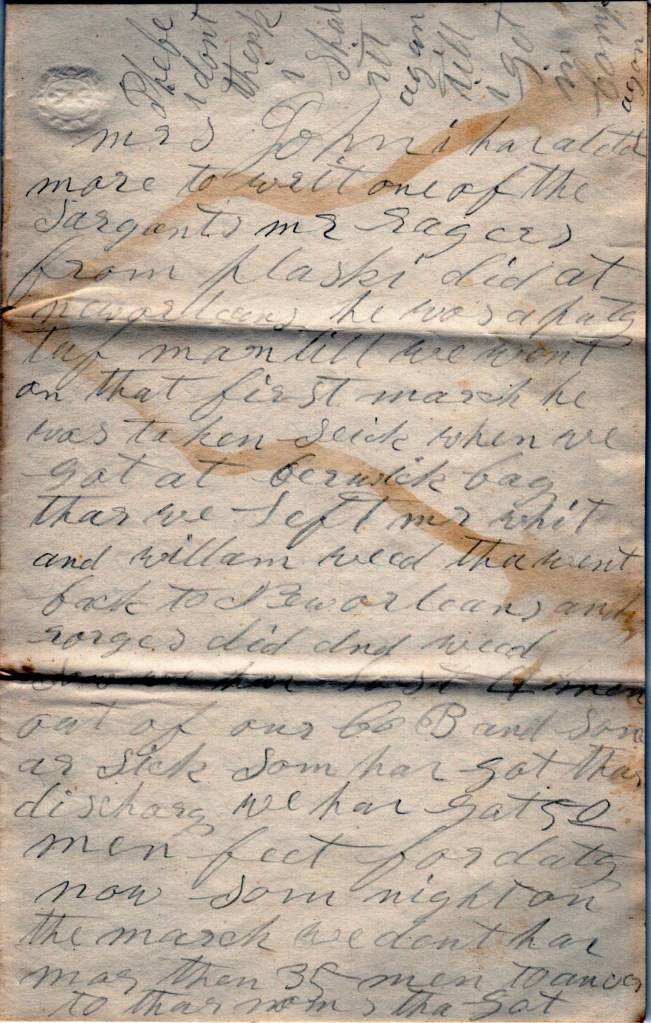 Phebe
i dont
think
i shal
rit
agan
till
i got
in
camp
agan
mrs John i har a letel
more to writ one of the
Sargents mr ragers
from plaski did at
neworleans he was a paty
tuf man till we went
on that first march he
was taken seick when we
got at berwick bay
thar we left mr whit
and willam weed tha went
back to Neworleans and
rorges did and weed
now we har lost 4 men
out of our Co B and som
ar sick som har got thar
discharg we har got 50
men feet for daty
now som night on
the march we dont har
mor then 35 men to ancer
to thar noms tha got